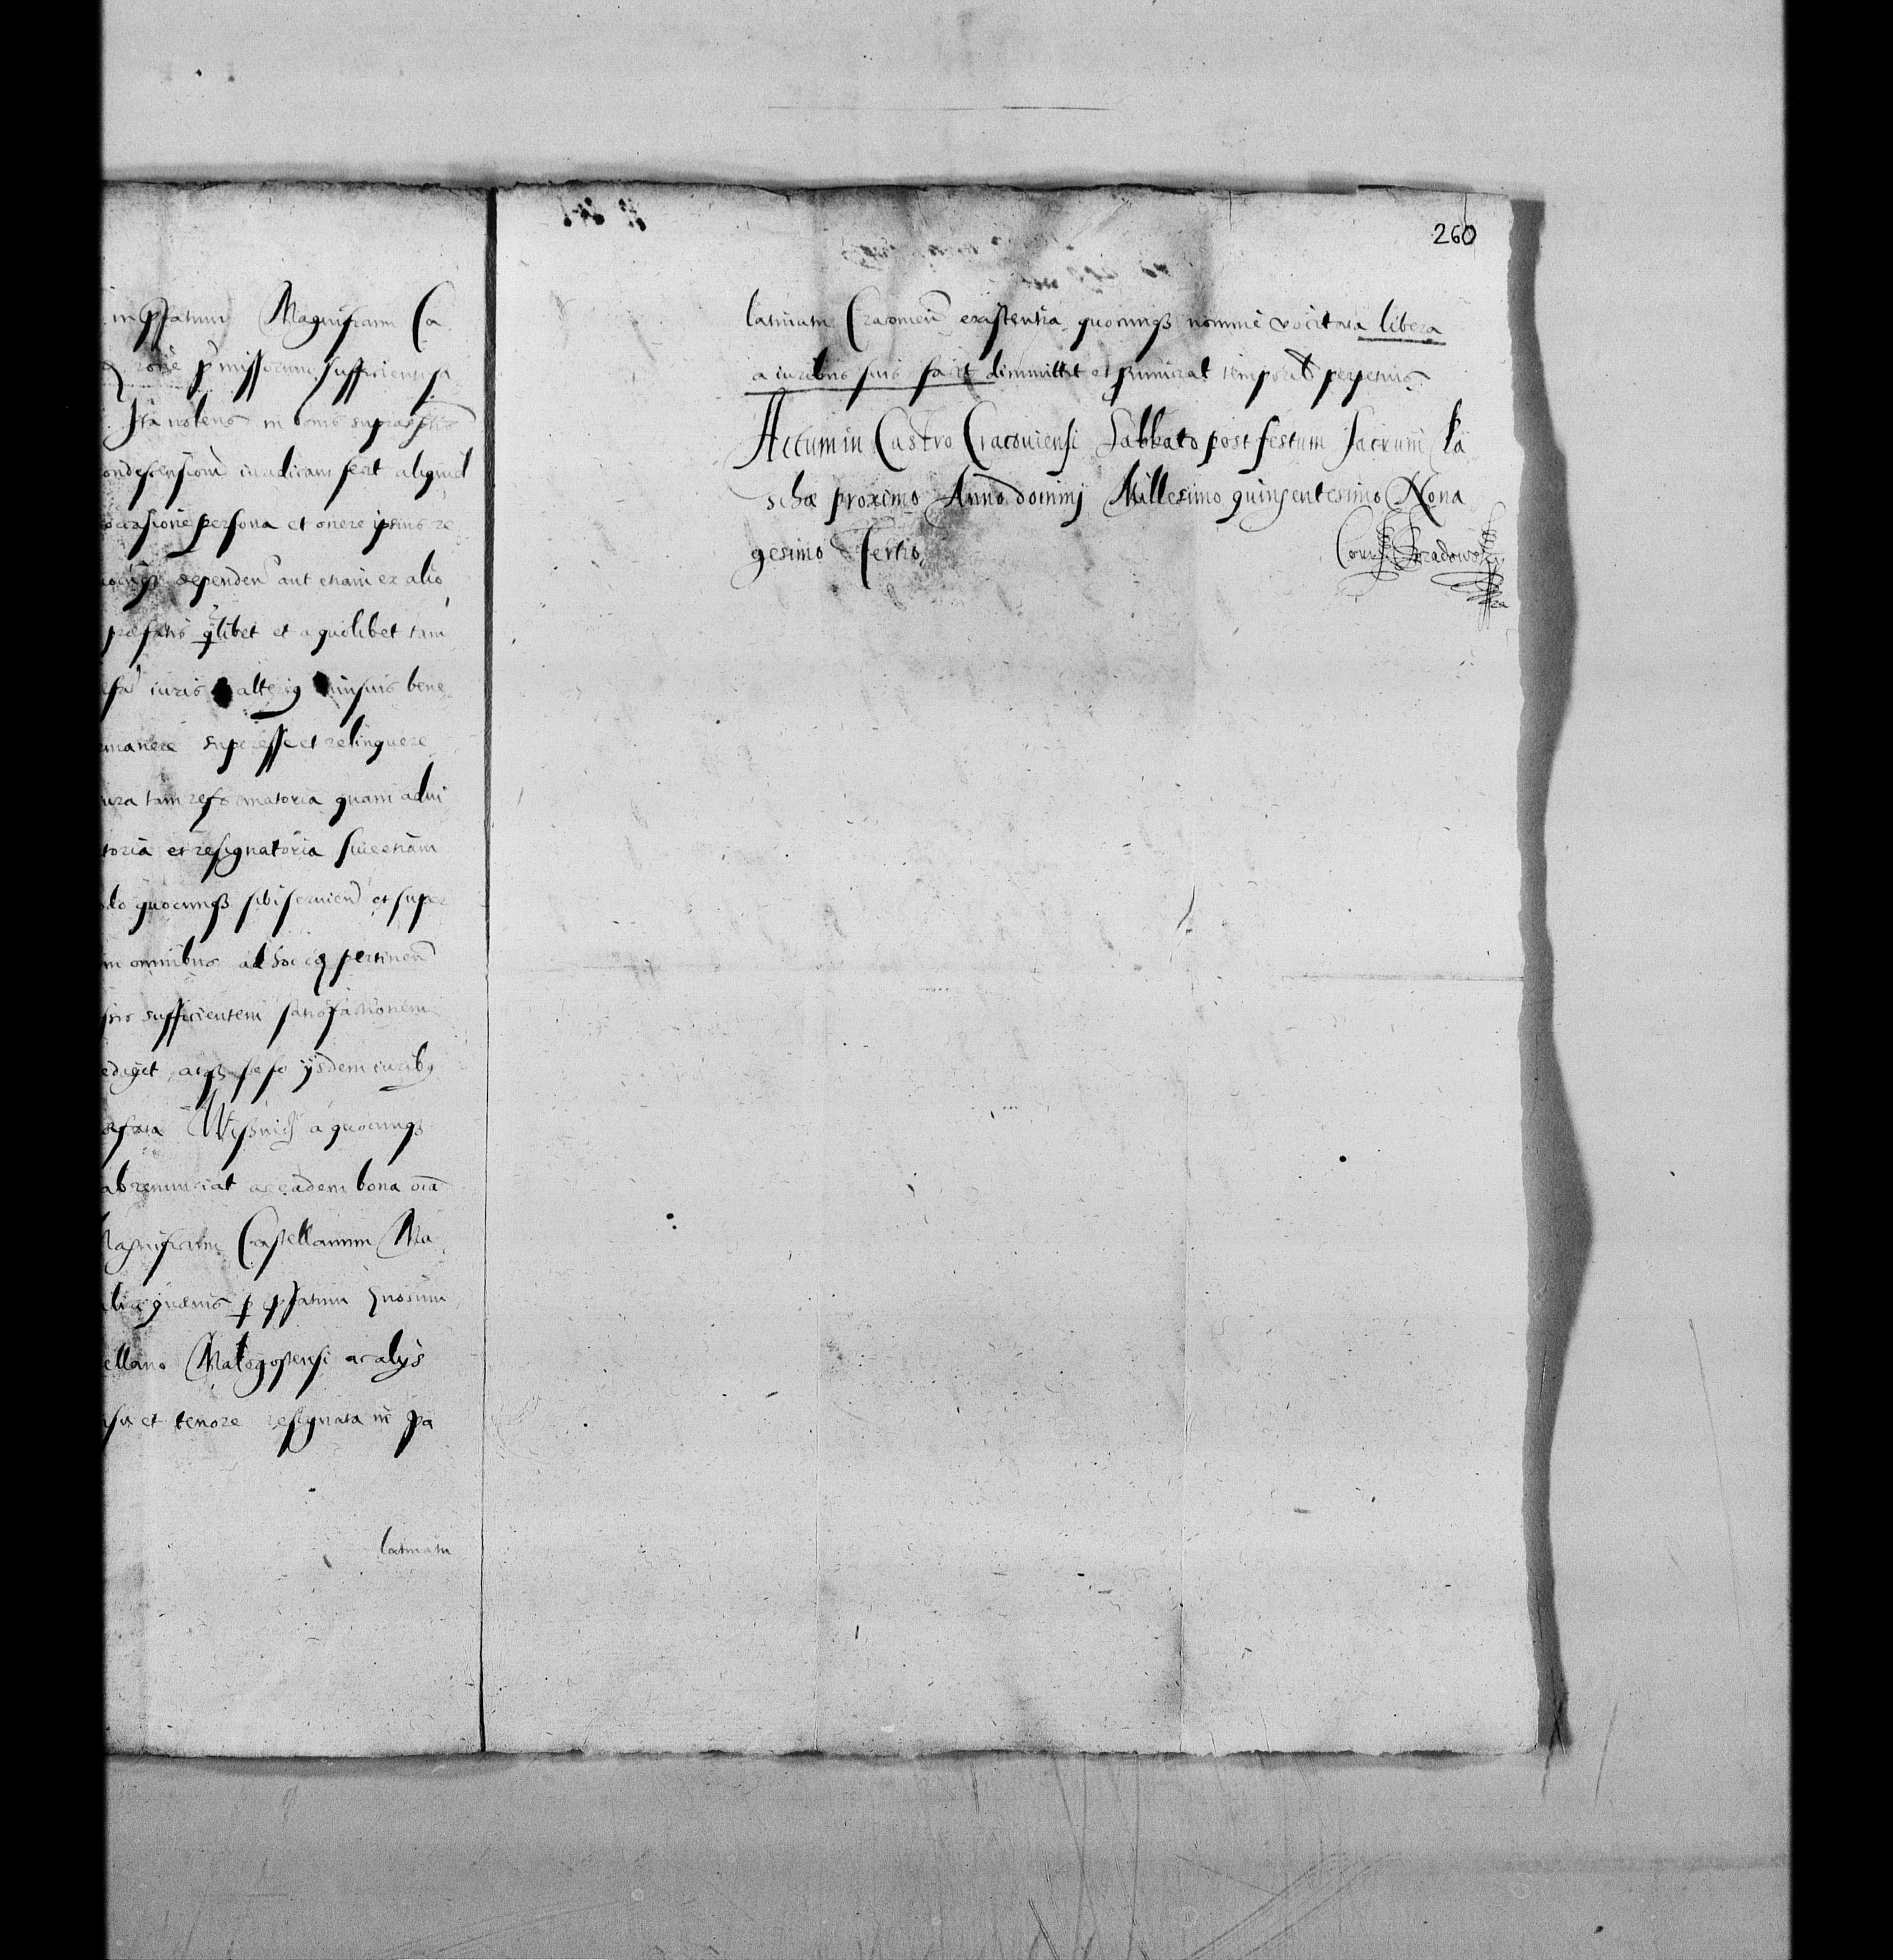 in pfatum Magnificum Ca
roñe pmissorum sufficientiss
Ita nolens in bonis suprascptis
ondescensioni iuradicam fert aliquid
occasione persona et onere ipsius re
dependen aut etiam ex alio
præfatis qlibet et a quolibet tam
iuris alteriq insuis bene
manere superesse et relinquere
ura tam reformatoria quam advi
toria et resignatoria sive etiam
do quocunqz sibi servien et super
m omnibus ad hoc eq pertinen
sufficientem satisfactionem
ediget atqz sese ijsdem iuribq
æfata Wisznicz a quocunqz
abrenunciat ac eadem bona oia
Magnificum Castellanum Ma
p pfatum Gnosum
ellano Malogostensi ac alijs
et tenore resignata in Pa
latinatu
260
latinatu Cracovien existentia quocunqz nomine vocitata libera
a iuribus suis facit dimmittit et pnunciat temporibq perpetuis
Actum in Castro Cracoviensi Sabbato post festum Sacrum Pa
schæ proximo Anno dominj Millesimo quingentesimo Nona
gesimo Tertio